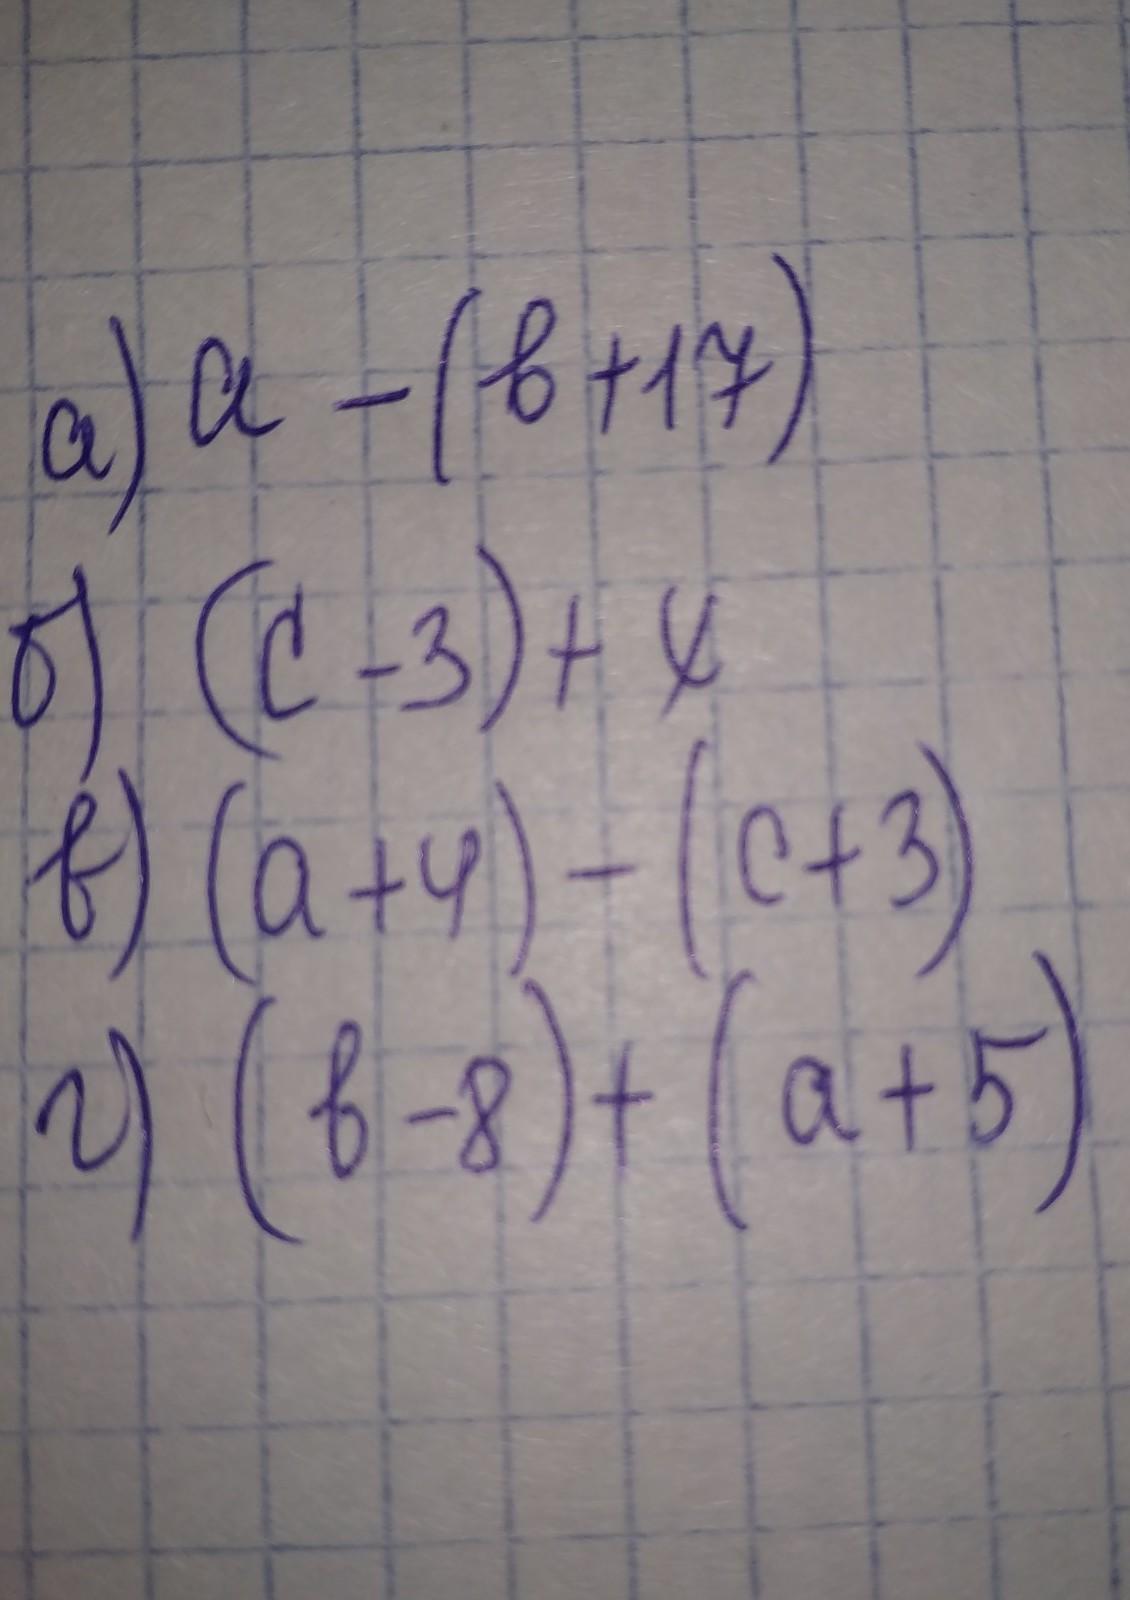 а) a - (b + 17)
б) (c - 3) + 4
в) (a + 4) - (c + 3)
г) (b - 8) + (a + 5)